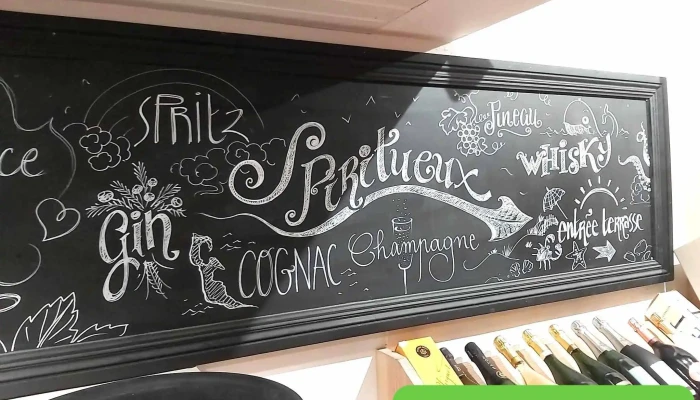 ce
SPRITZ
Spiritueux
Pineau
WHISKY
Gin
COGNAC
Champagne
entrée terrasse